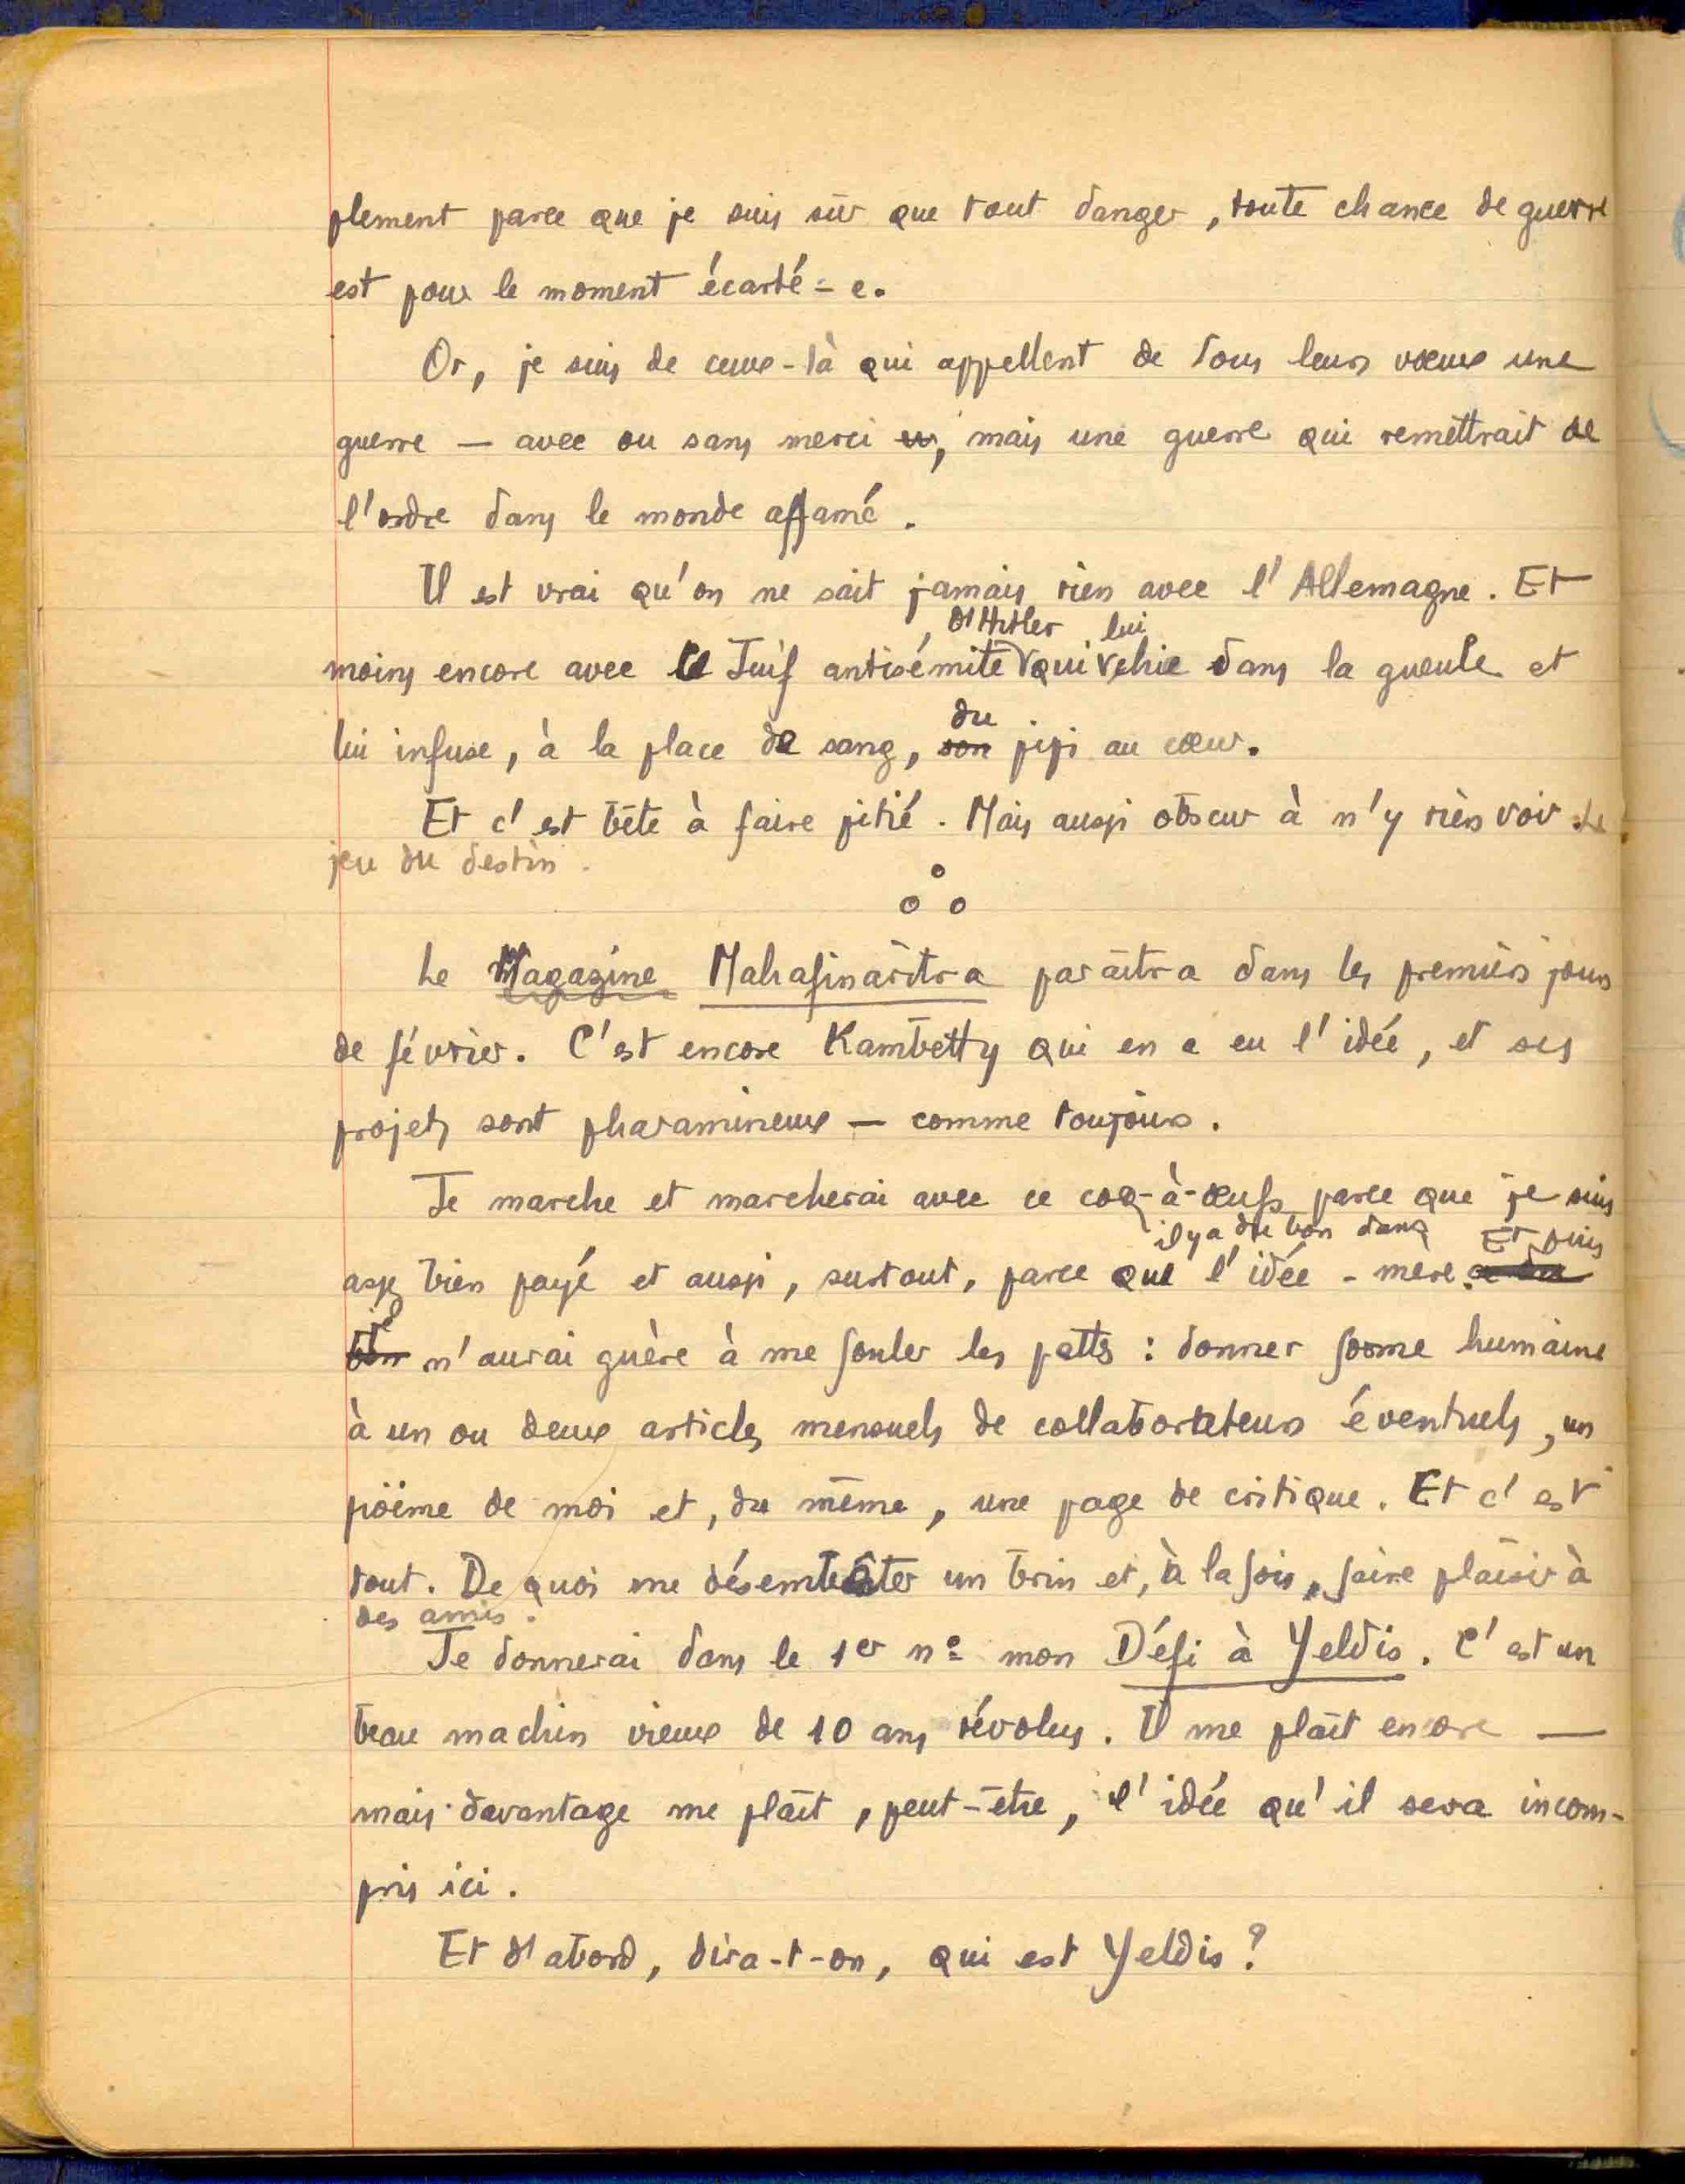 plement parce que je suis sûr que tout danger, toute chance de guerre
est pour le moment écarté-e.
Or, je suis de ceux-là qui appellent de tous leurs vœux une
guerre — avec ou sans merci, mais une guerre qui remettrait de
l'ordre dans le monde affamé.
Il est vrai qu'on ne sait jamais rien avec l'Allemagne. Et
d'Hitler, lui
moins encore avec le Juif antisémite qui chie dans la gueule et
du
lui infuse, à la place de sang, son pipi au cœur.
Et c'est bête à faire pitié. Mais aussi obscur à n'y rien voir. Le
jeu du destin.
Le Magazine Mahafinaritra paraîtra dans les premiers jours
de février. C'est encore Kambetty qui en a eu l'idée, et ses
projets sont pharamineux — comme toujours.
Je marche et marcherai avec ce coq-à-œufs parce que je suis
il y a du bon dans Et puis
assez bien payé et aussi, surtout, parce que l'idée-mère. a du
je
bon n'aurai guère à me fouler les pattes : donner forme humaine
à un ou deux articles mensuels de collaborateurs éventuels, un
poème de moi et, du même, une page de critique. Et c'est
tout. De quoi me désembêter un brin et, à la fois, faire plaisir à
des amis.
Je donnerai dans le 1er no mon Défi à Yeldis. C'est un
beau machin vieux de 10 ans révolus. Il me plaît encore —
mais davantage me plaît, peut-être, l'idée qu'il sera incom-
pris ici.
Et d'abord, dira-t-on, qui est Yeldis?